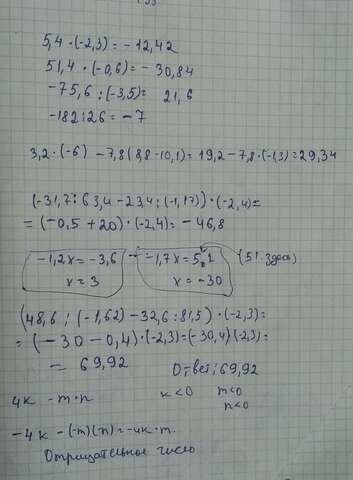 5,4 · (-2,3) = -12,42
51,4 · (-0,6) = -30,84
-75,6 : (-3,5) = 21,6
-182 : 26 = -7
3,2 · (-6) - 7,8 (8,8 - 10,1) = 19,2 - 7,8 · (-1,3) = 29,34
(-31,7 : 63,4 - 23,4 : (-1,17)) · (-2,4) =
= (-0,5 + 20) · (-2,4) = -46,8
-1,2x = -3,6 -1,7x = 5,1 (51 здесь)
x = 3 x = -30
(48,6 : (-1,62) - 32,6 : 81,5) · (-2,3) =
= (-30 - 0,4) · (-2,3) = (-30,4) (-2,3) =
= 69,92 Ответ: 69,92
4к -m · n к < 0 m < 0
n < 0
-4к - (-m)(n) = -4к · m.
Отрицательное число